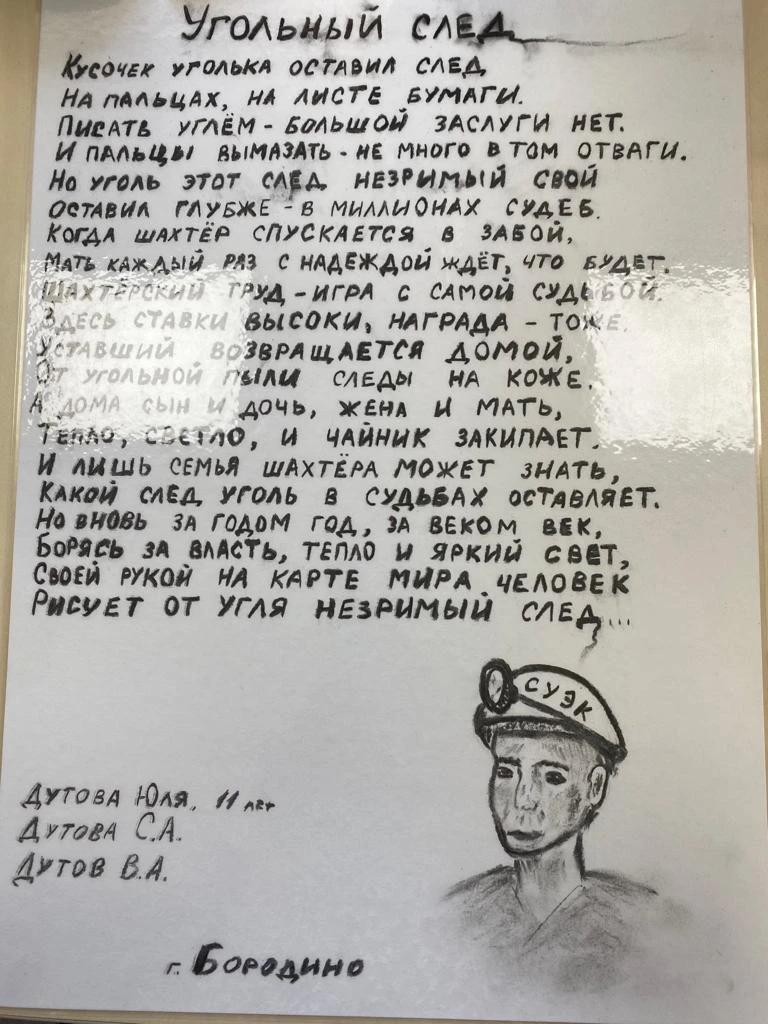 Угольный след
Кусочек уголька оставил след
На пальцах, на листе бумаги.
Писать углём - большой заслуги нет.
И пальцы вымазать - не много в том отваги.
Но уголь этот след незримый свой
Оставил глубже - в миллионах судеб.
Когда шахтёр спускается в забой,
Мать каждый раз с надеждой ждёт, что будет.
Шахтёрский труд - игра с самой судьбой.
Здесь ставки высоки, награда - тоже.
Уставший возвращается домой,
От угольной пыли следы на коже.
А дома сын и дочь, жена и мать,
Тепло, светло, и чайник закипает.
И лишь семья шахтёра может знать,
Какой след уголь в судьбах оставляет.
Но вновь за годом год, за веком век,
Борясь за власть, тепло и яркий свет,
Своей рукой на карте мира человек
Рисует от угля незримый след...
СУЭК
Дутова Юля, 11 лет
Дутова С.А.
Дутов В.А.
г. Бородино